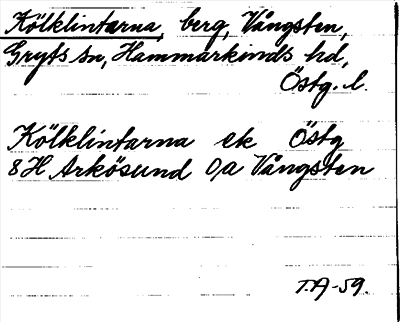 Kölklintarna, berg, Vångsten,
Gryts sn, Hammarkinds hd,
Östg. l.
Kölklintarna ek Östg
8H Arkösund 0,a Vångsten
T.A-59.